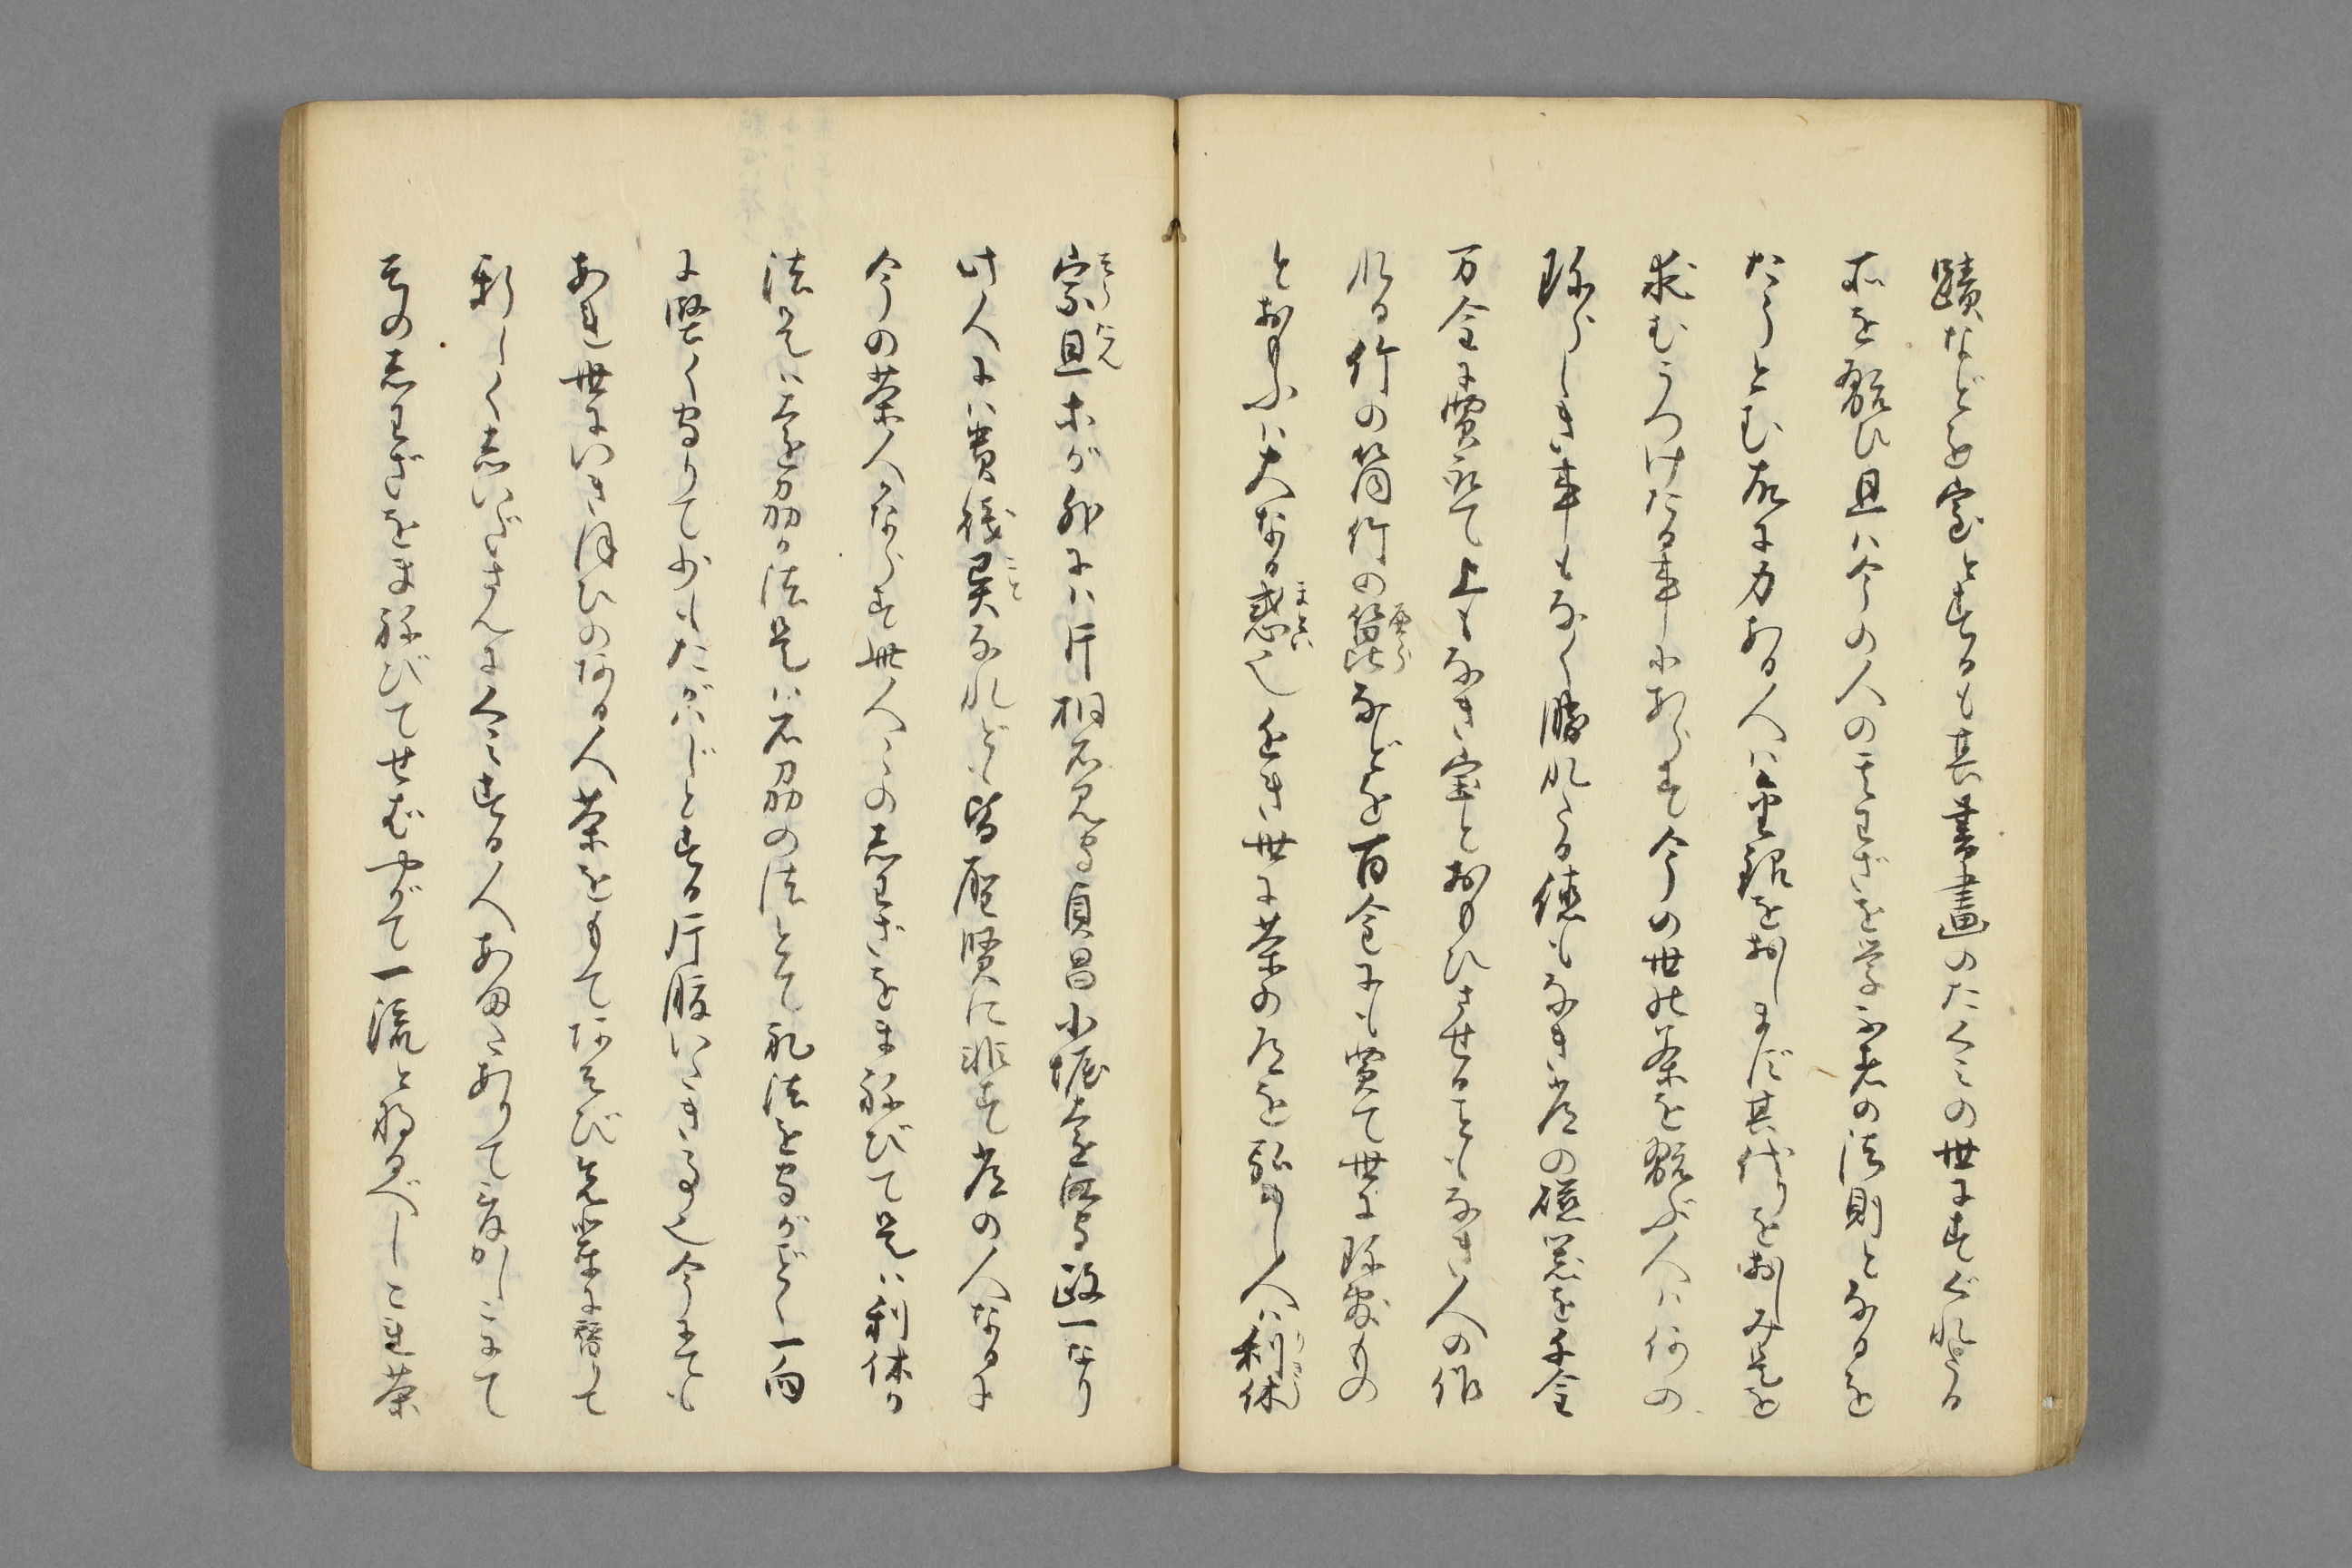 蹟などを宝とするも其書畫のたくみの世にすぐれたる
故を翫ひ且は今の人の其わざを学ぶ者の法則となるを
たうとむ故に力ある人は金銀をおしまず其代りをおしみ是を
求むうつけたる事にあらず今の世の茶を翫ぶ人は何の
珍らしき事もなく勝れたる徳もなき昔の磁器を千金
万金に買取て上もなき宝とおもひさせることもなき人の作
れる竹の筒竹の篦などを百金にも買て世に珍敷もの
とおもふは大なる惑也近き世に茶の道を弘めし人は利休
宗旦古が外には片桐石見守貞昌小堀遠江守政一なり
此人々は貴賤異なれども皆聖賢に非ず昔の人なるに
今の茶人ならず世人々の志わざをまねびて是は利休の
法是は遠州の法是は石州の法とて礼法を守がごとく一向
に堅く守りて少もたがはじとする片腹いたき事也今にても
あれ世にいきほひのある人茶をもてあそび先輩に替りて
新しく志いださんにくみする人あまたありて言かしこまて
其の志わざをまねびてせばやがて一流と称すべしこれ茶